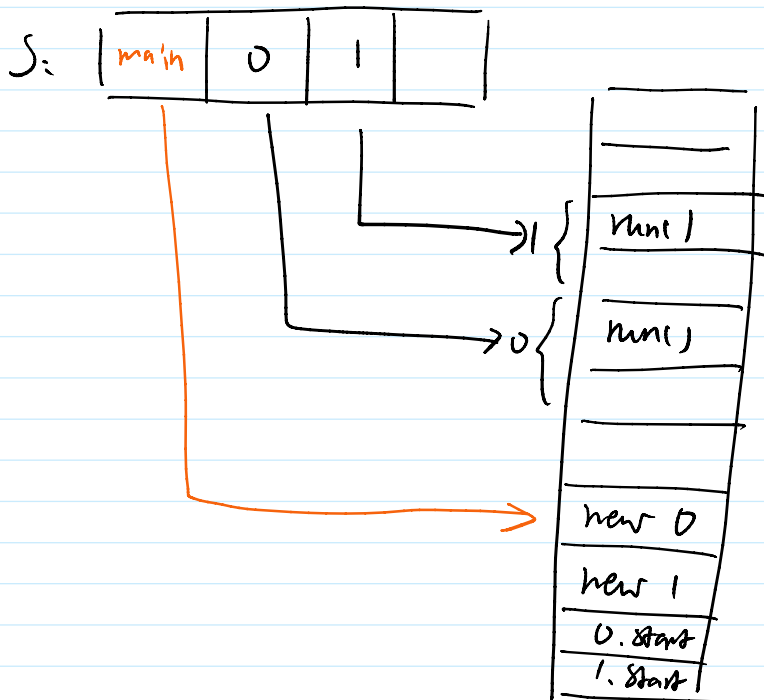 S: main 0 1
1 run()
0 run()
new 0
new 1
0.start
1.start